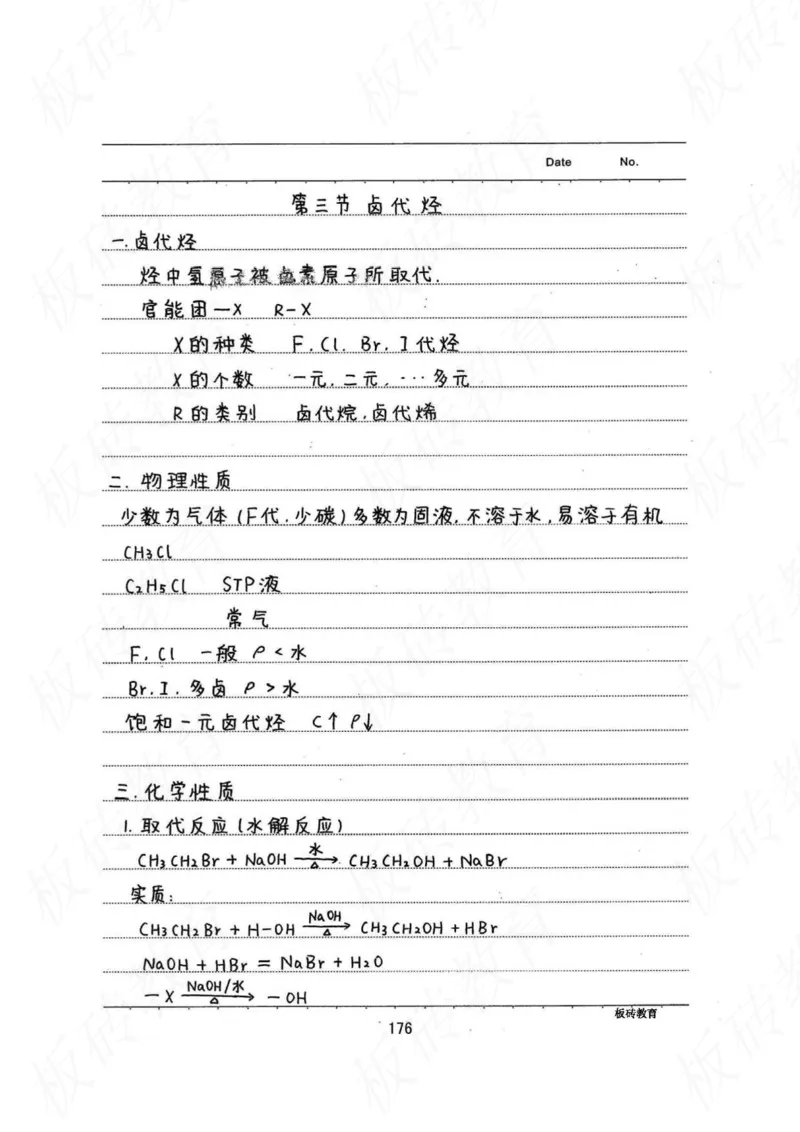 Date No.
第三节 卤代烃
一.卤代烃
烃中氢原子被卤素原子所取代.
官能团 —X R-X
X的种类 F.Cl. Br.I代烃
X的个数 一元.二元.…多元
R的类别 卤代烷.卤代烯
二. 物理性质
少数为气体(F代.少碳)多数为固液,不溶于水,易溶于有机
CH3Cl
C2H5Cl STP液
常气
F.Cl 一般 ρ<水
Br.I.多卤 ρ>水
饱和一元卤代烃 C↑ ρ↓
三.化学性质
1.取代反应(水解反应)
CH3CH2Br + NaOH —水/△→ CH3CH2OH + NaBr
实质:
CH3CH2Br + H-OH —NaOH/△→ CH3CH2OH + HBr
NaOH + HBr = NaBr + H2O
—X —NaOH/水/△→ —OH
板砖教育
176